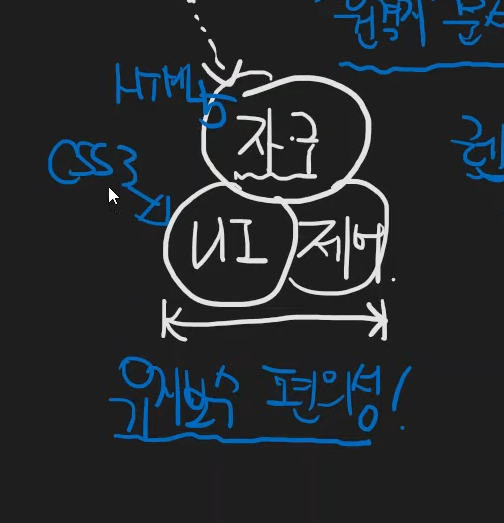 원격지 문서
HTML5
자료
CSS3
UI 제어
유지보수 편의성!